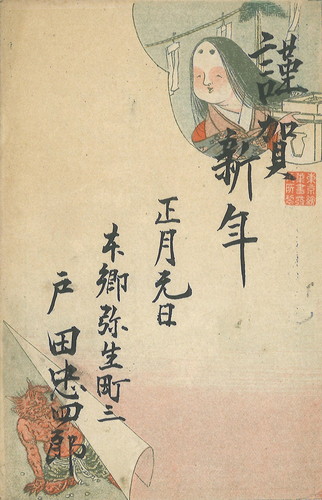 謹賀
新年
正月元日
本郷弥生町三
戸田忠四郎